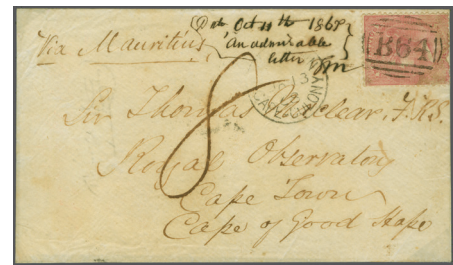 Via Mauritius
Oct 11th 1868
An admirable
letter
B64
8
Sir Thomas Maclear, F.R.S.
Royal Observatory
Cape Town
Cape of Good Hope